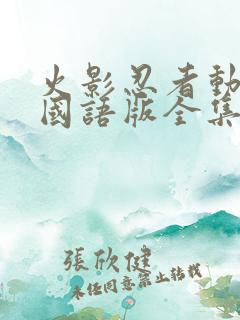 火影忍者動
國語版全集
張欣健
未經同意禁止轉載